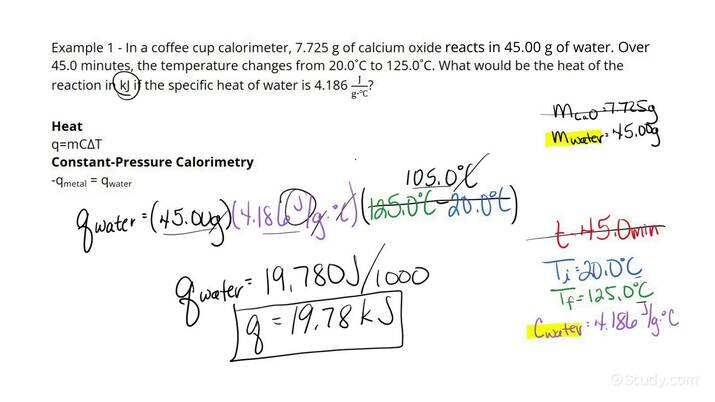 Example 1 - In a coffee cup calorimeter, 7.725 g of calcium oxide reacts in 45.00 g of water. Over
45.0 minutes, the temperature changes from 20.0°C to 125.0°C. What would be the heat of the
reaction in kJ if the specific heat of water is 4.186 J/g·°C?
m CaO = 7.725g
m water = 45.00g
Heat
q=mCΔT
Constant-Pressure Calorimetry
-qmetal = qwater
105.0°C
q water = (45.00g)(4.186 J/g·°C)(125.0°C - 20.0°C)
t = 45.0min
q water = 19,780J/1000
Ti = 20.0°C
Tf = 125.0°C
q = 19.78 kJ
Cwater = 4.186 J/g·°C
©Study.com